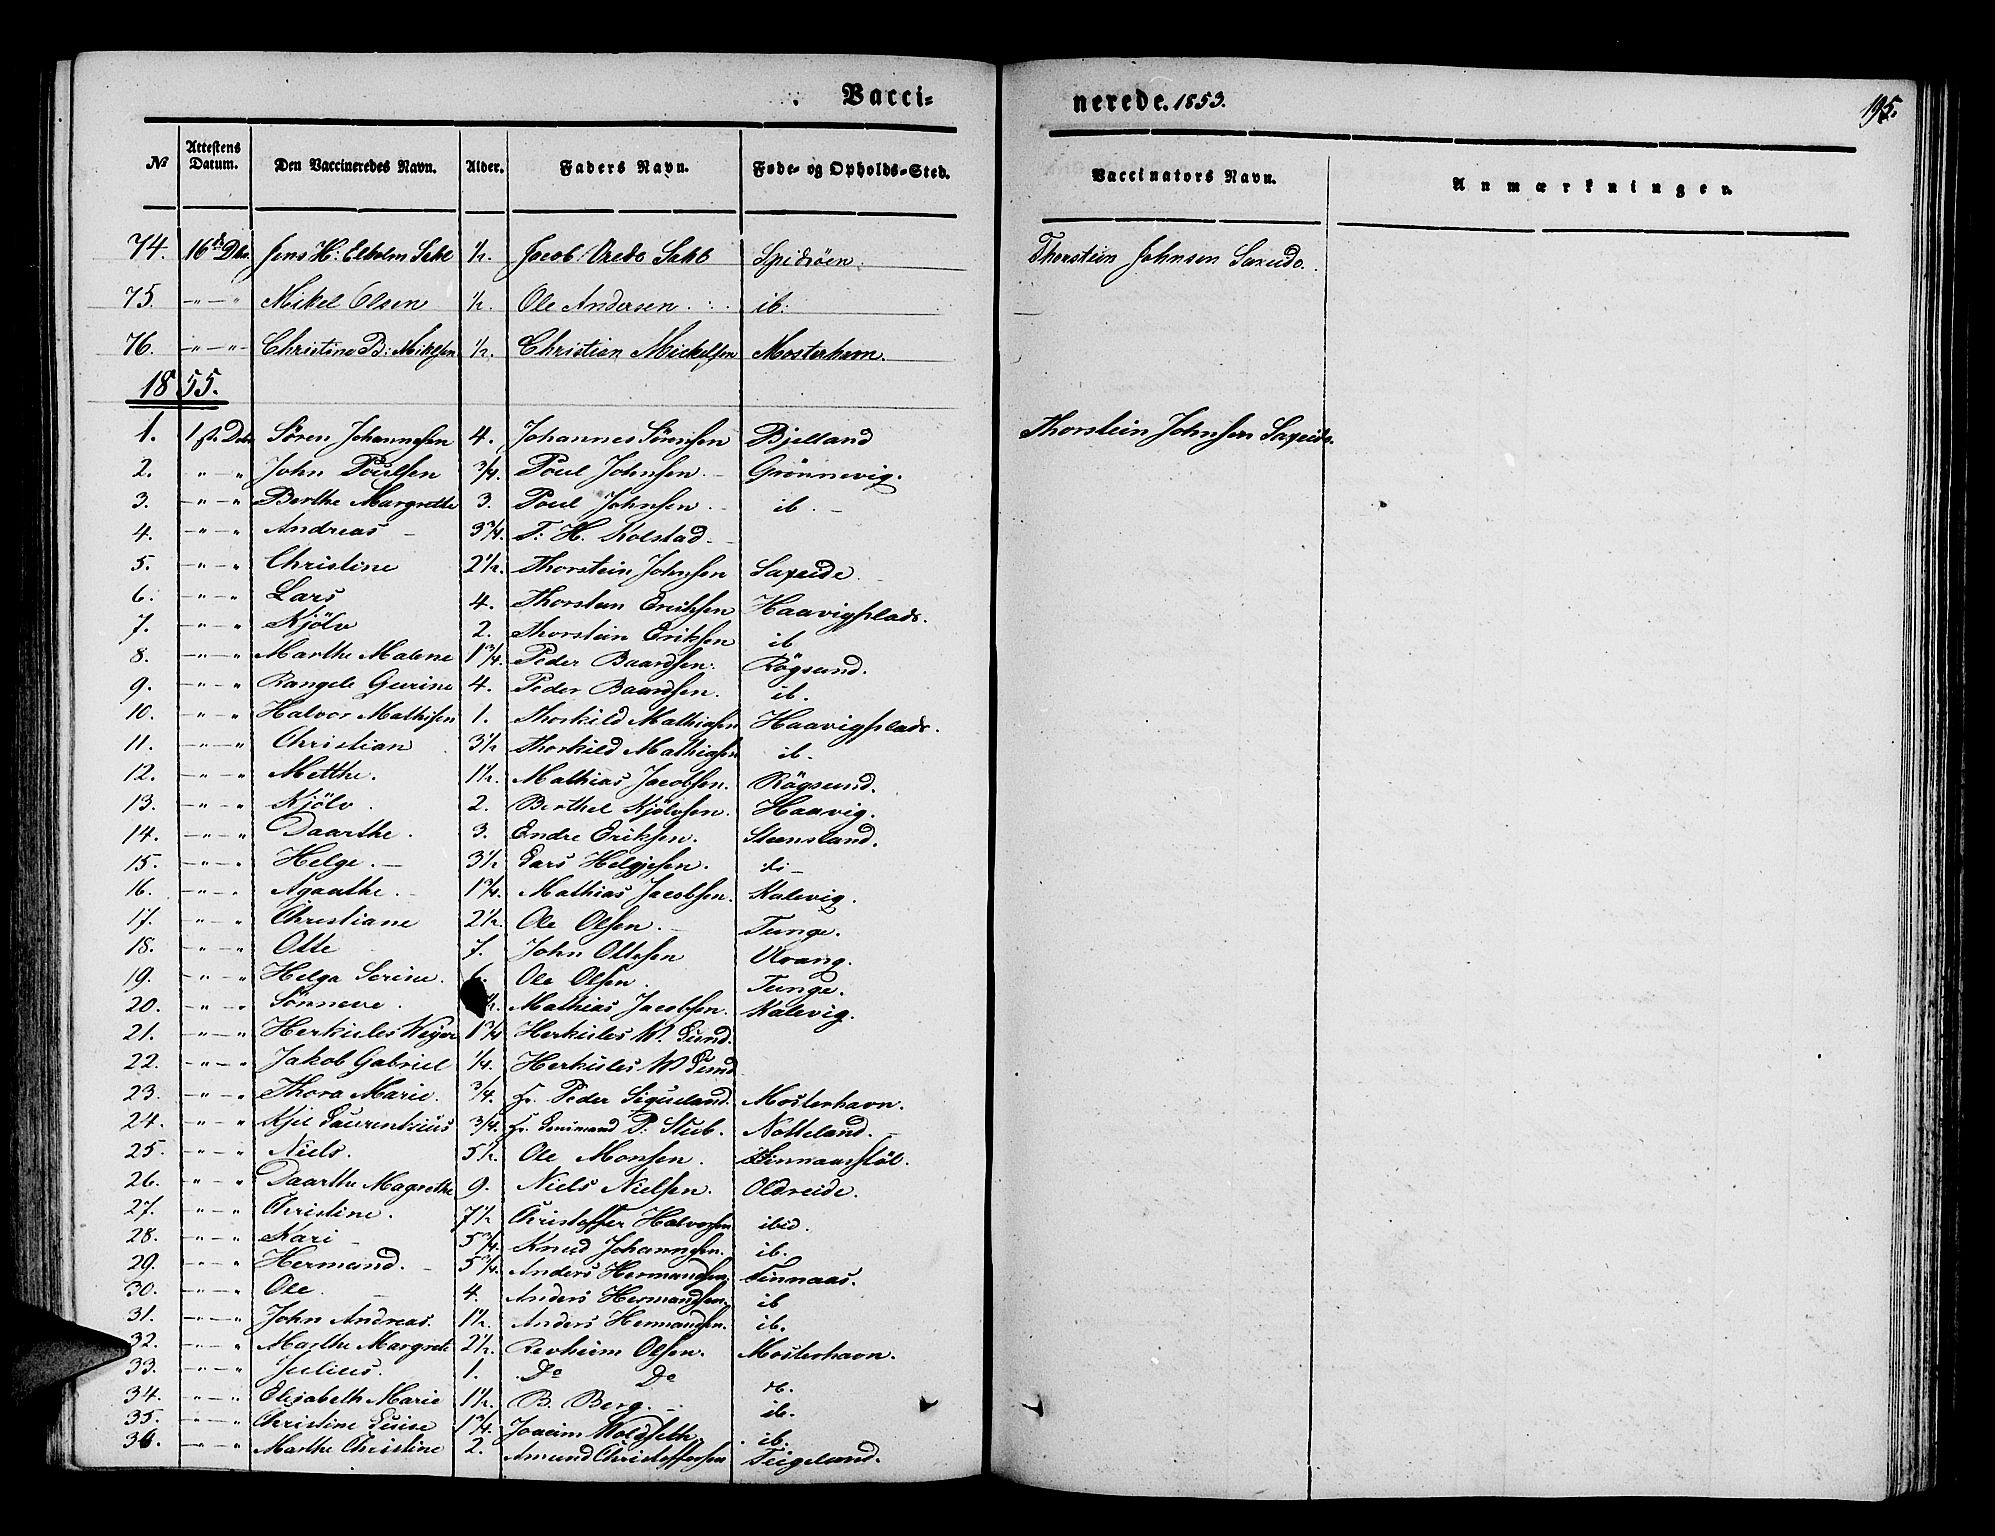 Vacci-
nerede. 1853.
195.
№ Attestens Datum. Den Vaccineredes Navn. Alder. Faders Navn. Føde- og Opholds-Sted. Vaccinators Navn. Anmærkninger.
74. 16de Dbr. Jens H: Elholm 1/2. Jacob Spidsöen. Thorstein Johnsen Saxeide.
75. -"- Mikel Olsen 1/2. Ole Andersen. ib:
76. -"-"- Christine B: Mikelsen 1/2. Christian Mickelsen Mosterhavn.
1855.
1. 1st. Dbr. Sören Johannesen 4. Johannes Sörensen Bjelland Thorstein Johnsen Saxeide.
2. " - " John Poulsen 3/4. Poul Johnsen. Grönnevig.
3. " - " Berthe Margrethe 3. Poul Johnsen. ib.
4. -"-" Andreas 3 3/4. T. H. Kolstad.
5. -"-" Christine 2 1/2. Thorstein Johnsen Saxeide.
6. -"-" Lars 4. Thorstein Eriksen Haavigplads.
7. -"-" Kjölv 2. Thorstein Eriksen ib
8. -"-" Marthe Malene 1 3/4. Peder Baardsen. Rögsund.
9. -"-" Rangele Gurine 4. Peder Baardsen. ib.
10. -"-" Halvor Mathisen 1. Thorkild Mathiasen Haavigplads.
11. -"-" Christian 3 1/2 Thorkild Mathiasen ib.
12. -"-" Metthe. 1 1/2. Mathias Jacobsen. Rögsund.
13. -"-" Kjölv. 2. Berthel Kjölvsen. Haavig.
14. -"-" Daarthe. 3. Endre Eriksen. Steensland.
15. -"-" Helge. 3 1/2 Lars Helgjesen.
16. -"-" Agaathe. 1 3/4. Mathias Jacobsen. Kalevig.
17. -"-" Christiane 2 1/2. Ole Olsen. Tunge.
18. -"-" Otte 7. John Ottesen Vrang.
19. -"-" Helga Serine. 6. Ole Olsen. Tunge.
20. -"-" Sönneve. Mathias Jacobsen. Kalevig.
21. -"-" Herkules Weyer 1 3/4 Herkules W. Lund.
22. -"-" Jakob Gabriel 1/4. Herkules W Lund
23. -"-" Thora Marie. 3/4. Hr. Peder Sigueland. Mosterhavn.
24. -"-" Kjel Laurentius 3/4. Hr. P. Stub. Notteland.
25. -"-" Niels. 5 1/2. Ole Monsen. Finnaasstöl.
26. -"-" Daarthe Magrethe 9. Niels Nielsen. Oldreide.
27. -"-" Christine. 7 1/2 Christoffer Halvorsen ibid.
28. -"-" Kari 5 3/4. Knud Johannesen. ib.
29. -"-" Hermand. 5 3/4. Anders Hermandsen. Finnaas.
30. -"-" Ole. 4. Anders Hermandsen. ib
31. -"-" John Andreas. 1 1/2. Anders Hermandsen. ib.
32. -"-" Marthe Margrete 2 1/2. Revheim Olsen. Mosterhavn.
33. -"-" Julius. 1. Do Do ib.
34. -"-" Elisabeth Marie 1 1/2. B. Berg. ib.
35. -"-" Christine Luise 1 3/4. Joacim Woldseth. ib:
36. -"-" Marthe Christine 2. Amund Christoffersen Teigeland.